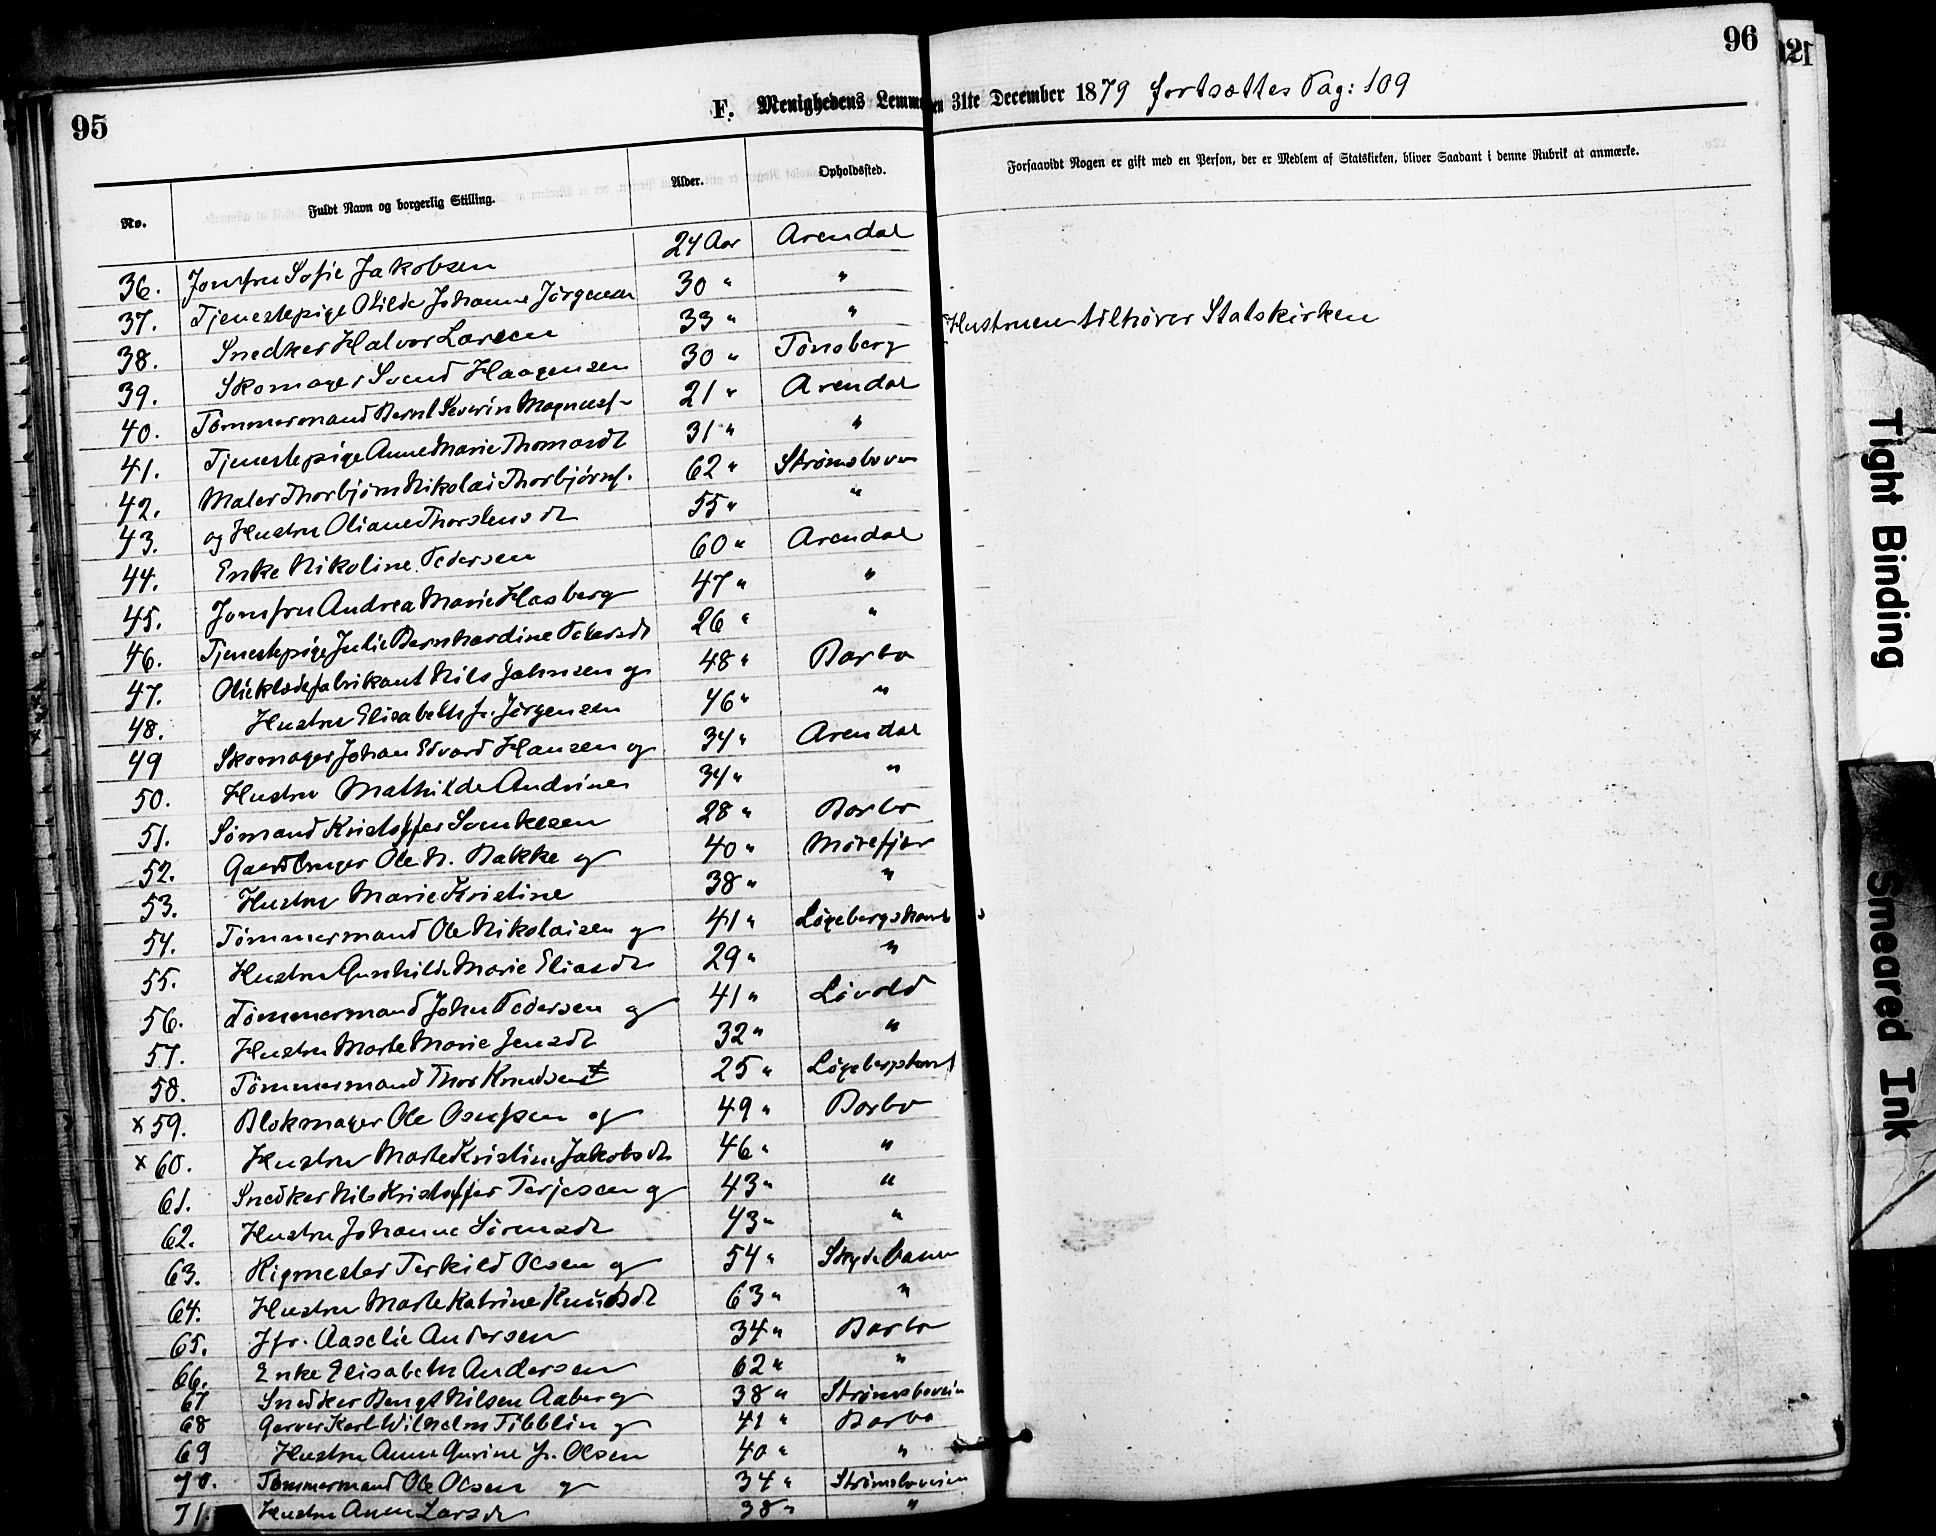 95
96
F. Menighedens Lemmer den 31te December 1879 fortsættes Pag: 109
No. Fuldt Navn og borgerlig Stilling. Alder. Opholdssted. Forsaavidt Nogen er gift med en Person, der er Medlem af Statskirken, bliver Saadant i denne Rubrik at anmærke.
36. Jomfru Sofie Jakobsen 24 Aar Arendal
37. Tjenestepige Otilde Johanne Jörgensen 30 " "
38. Snedker Halvor Larsen 33 " " Hustruen tilhører Statskirken
39. Skomager Svend Haagensen 30 " Tønsberg
40. Tömmermand Bernt Severin Magnusf- 21 " Arendal
41. Tjenestepige Anne Marie Thomasdt 31 " "
42. Maler Thorbjörn Nikolai Thorbjörnf. 62 " Strømsbuen
43. og Hustru Oliane Thorstensdt 55 " "
44. Enke Nikoline Pedersen 60 " Arendal
45. Jomfru Andrea Marie Hasberg 47 " "
46. Tjenestepige Julie Bernhardine Petersdt 26 " "
47. Olieklædefabrikant Nils Johnsen og 48 " Barbo
48. Hustru Elisabeth f. Jörgensen 46 " "
49 Skomager Johan Edvard Hansen og 34 " Arendal
50. Hustru Mathilde Andrine 34 " "
51. Sömand Kristoffer Svenkesen 28 " Barbo
52. Gaardbruger Ole N. Bakke og 40 " Mörefjær
53. Hustru Marie Kristine 38 " "
54. Tömmermand Ole Nikolaisen og 41 "
55. Hustru Gunhilde Marie Eliasdt 29 " "
56. Tömmermand John Pedersen og 41 " Lövold
57. Hustru Marte Marie Jensdt 32 " "
58. Tömmermand Thor Knudsen 25 "
x 59. Blokmager Ole Osufsen og 49 " Barbo
x 60. Hustru Marte Kristine Jakobsdt 46 " "
61. Snedker Nils Kristoffer Terjesen og 43 " "
62. Hustru Johanne Sörensdt 43 " "
63. Rigmester Terkild Olsen og 54 " Skydebanen
64. Hustru Marte Katrine Knudsdt 63 " "
65. Jfr. Aaselie Andersen 34 " Barbo
66. Enke Elisabeth Andersen 62 " "
67 Snedker Bengt Nilsen Aaberg 38 " Strømsbuveien
68 Garver Karl Wilhelm Tibblin og 41 " Barbo
69 Hustru Anne Gurine f. Olsen 40 " "
70. Tömmermand Ole Olsen og 34 " Strømsbuveien
71. Hustru Anne Larsdt 38 " "
Tight Binding
Smeared Ink